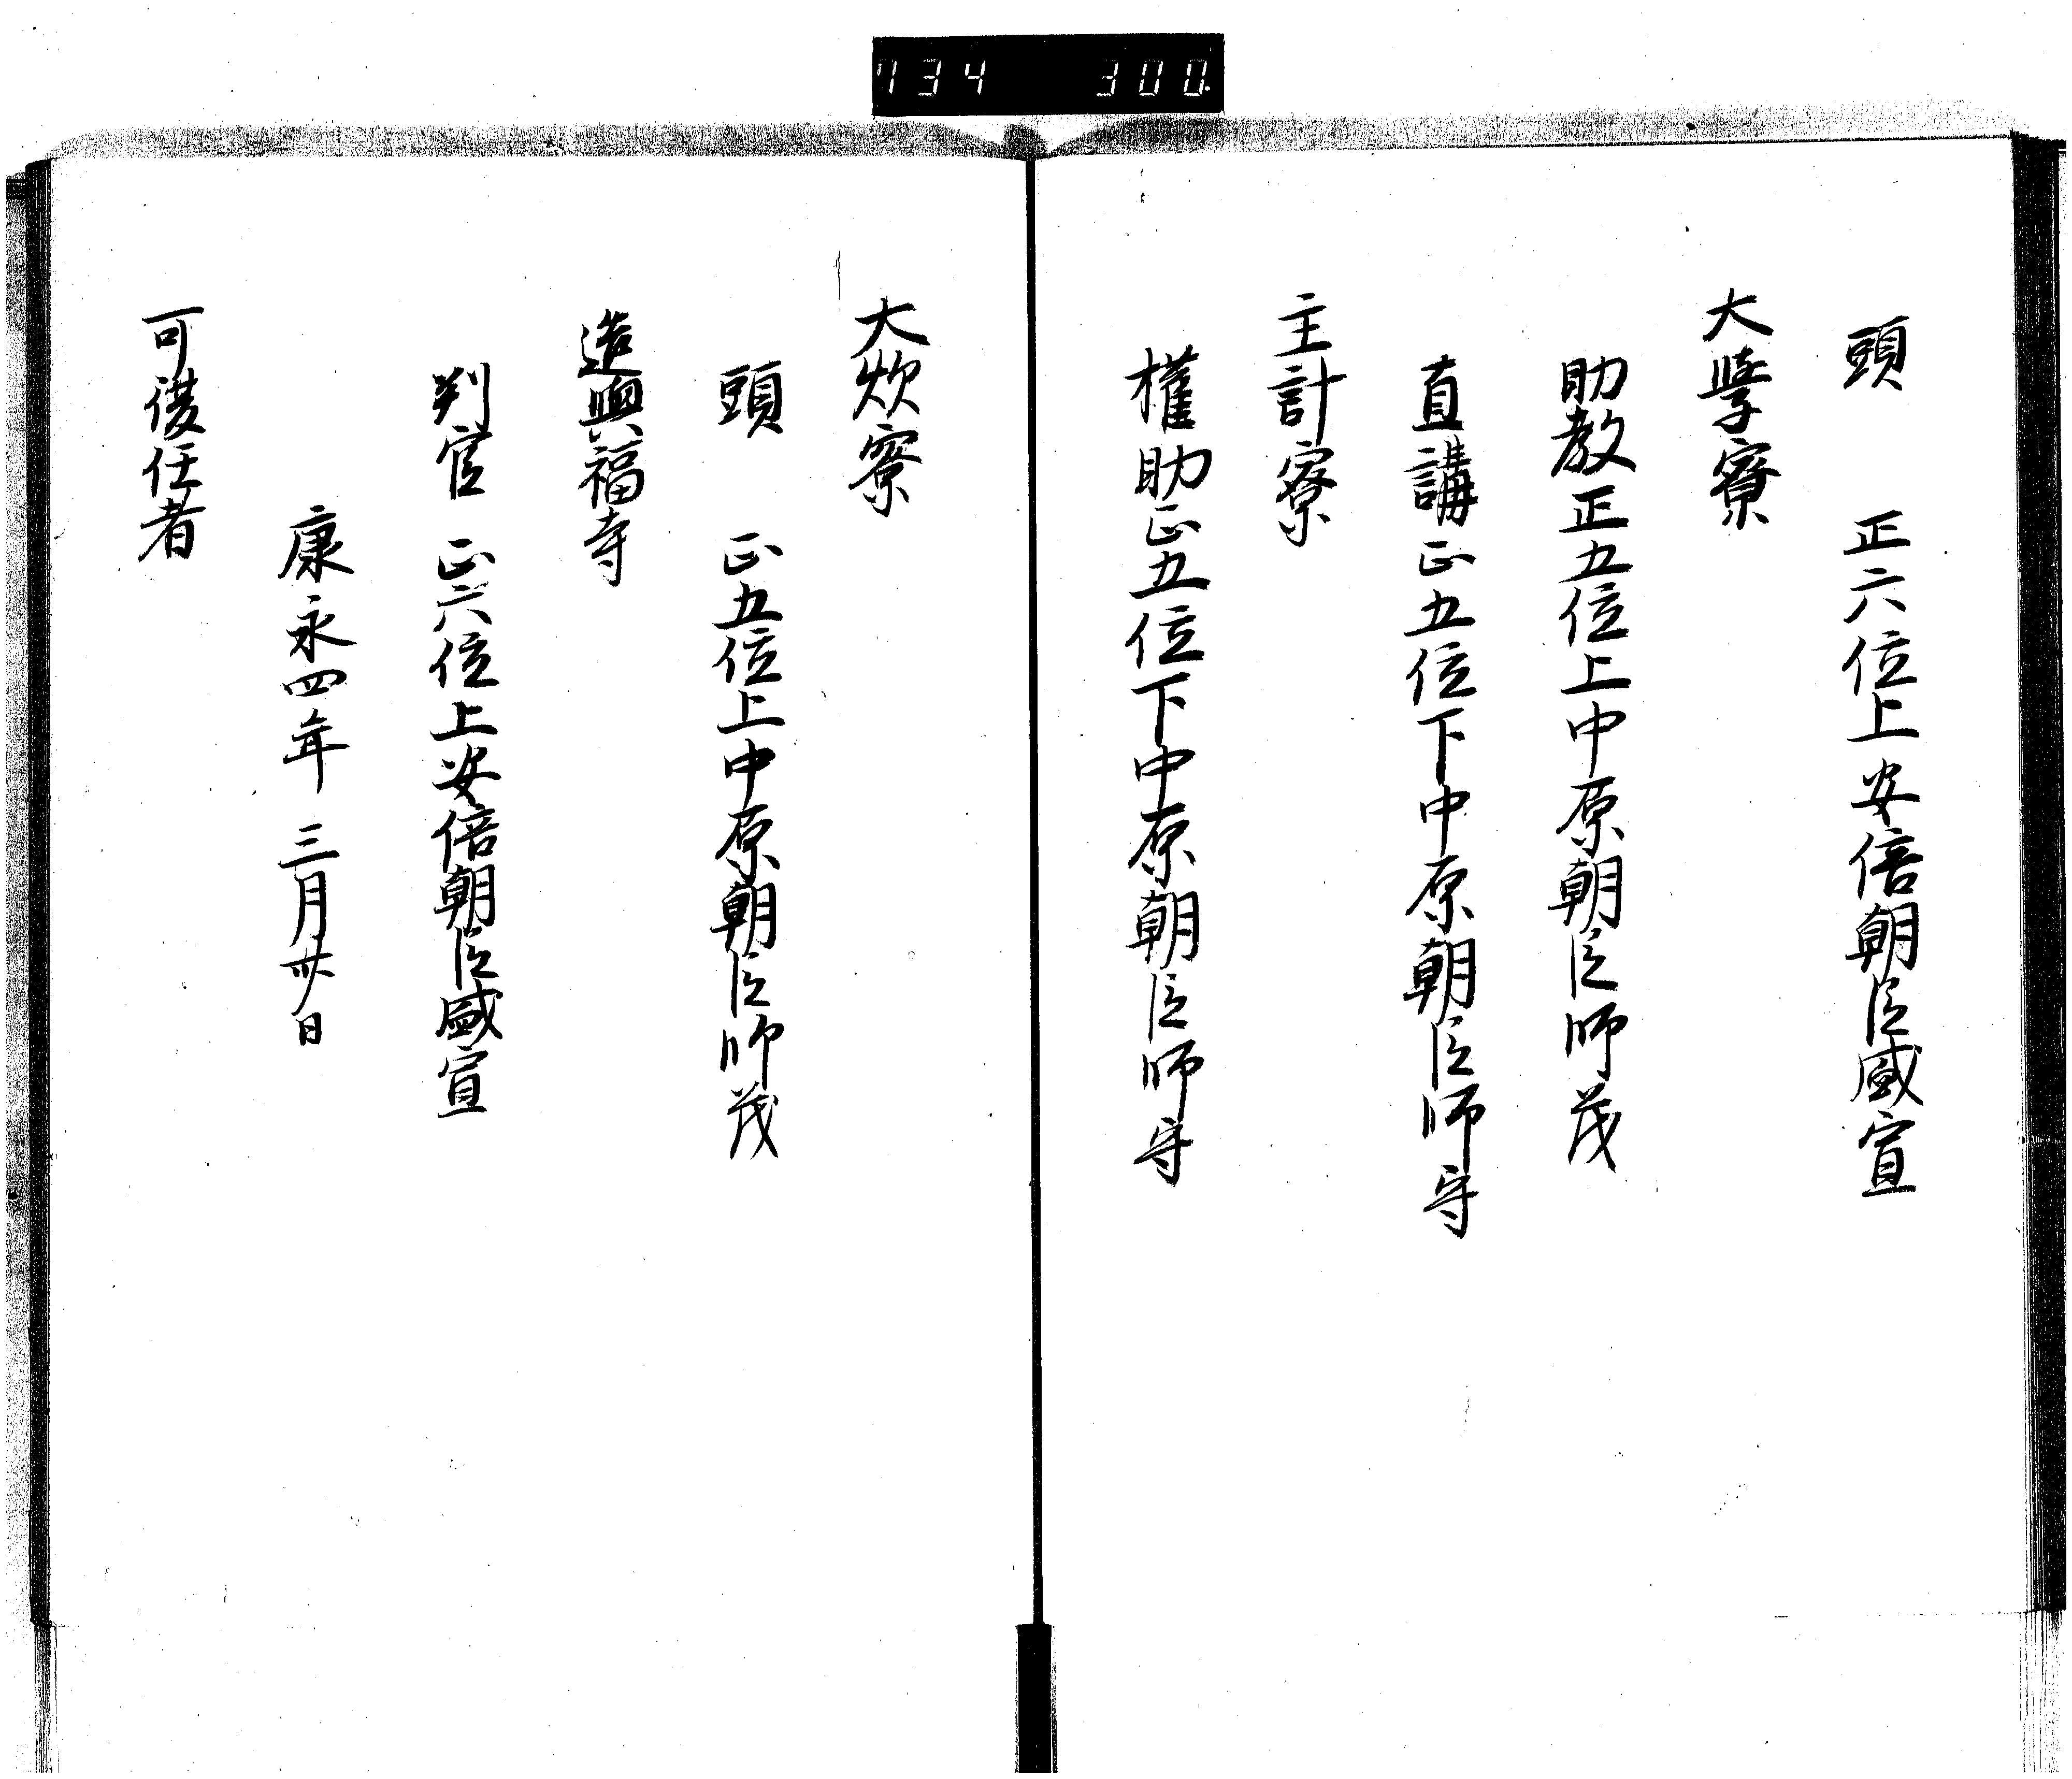 734 300
頭 正六位上安倍朝臣盛宣
大學寮
助教正五位上中原朝臣師茂
直講正五位下中原朝臣師守
主計寮
權助正五位下中原朝臣師守
大炊寮
頭 正五位上中原朝臣師茂
造興福寺
判官 正六位上安倍朝臣盛宣
康永四年三月卅日
可復任者